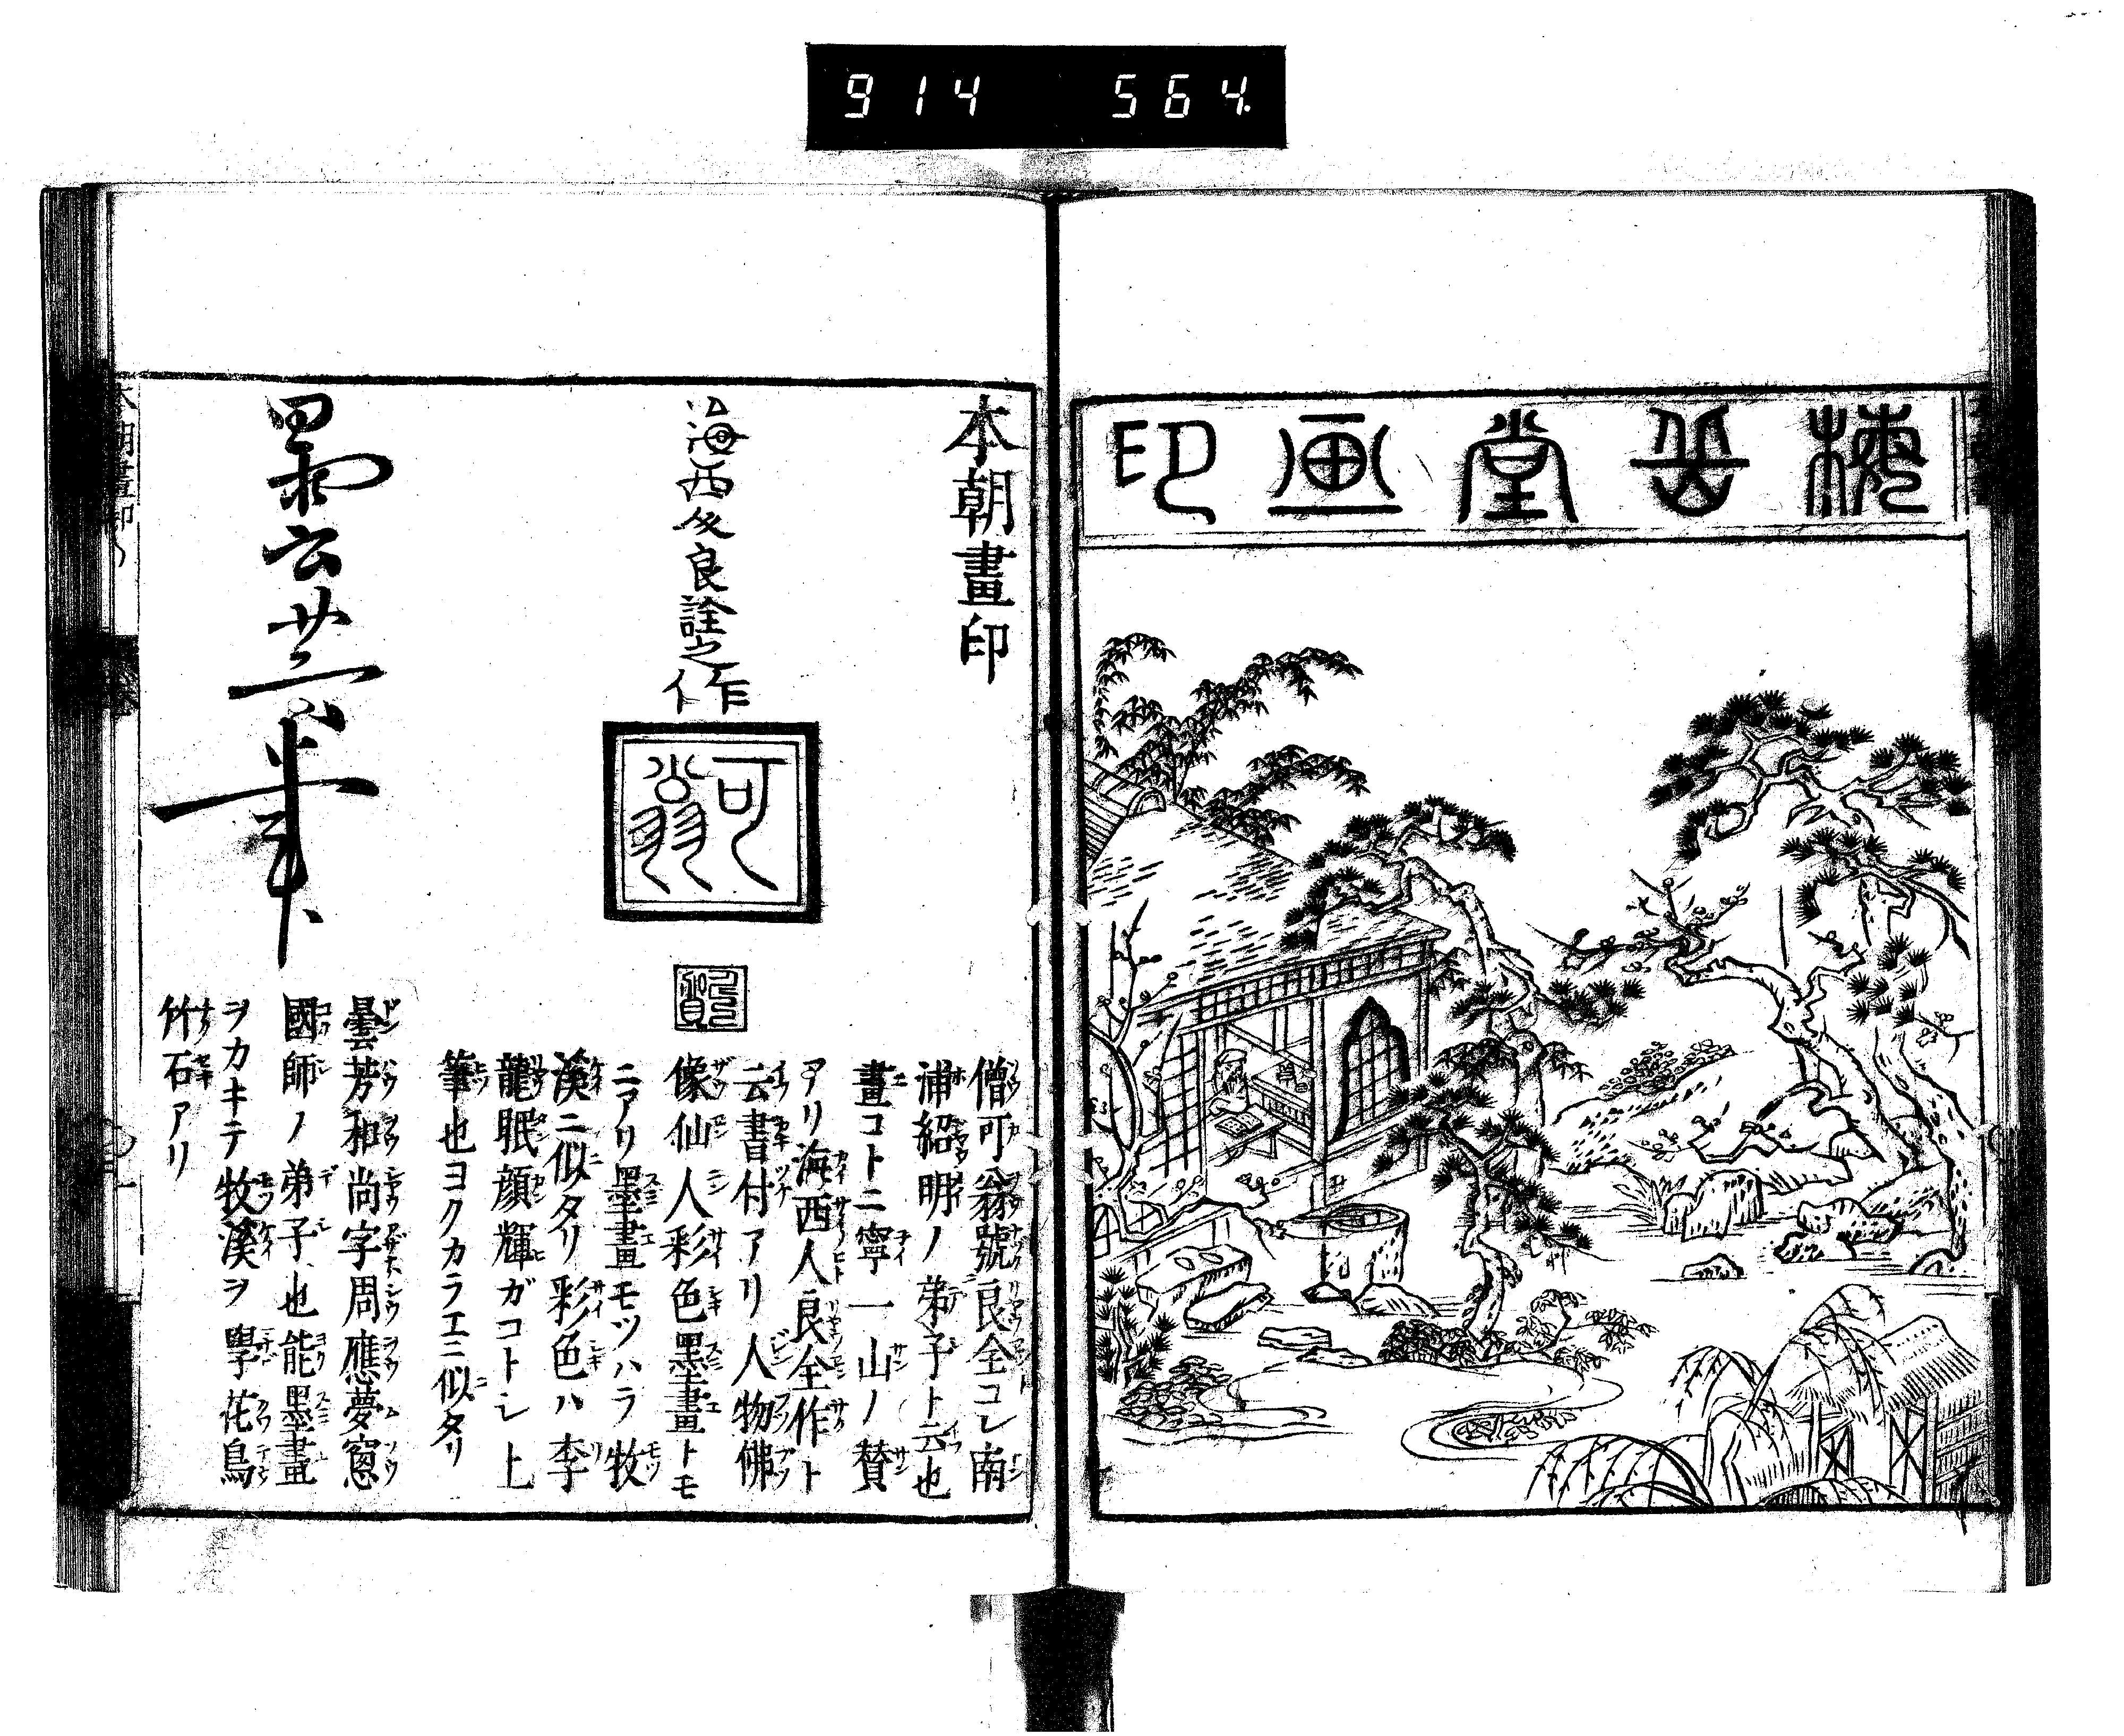 914 564.
梅岳堂画印
本朝畫印
海西人良詮之作
可翁
僧可翁號良全コレ南
浦紹明ノ弟子ト云也
畫コトニ寧一山ノ賛
アリ海西人良全作ト
云書付アリ人物佛
像仙人彩色墨畫トモ
ニアリ墨畫モツハラ牧
溪ニ似タリ彩色ハ李
龍眠顔輝ガコトシ上
筆也ヨクカラエニ似タリ
曇芳和尚字周應夢窓
國師ノ弟子也能墨畫
ヲカキテ牧溪ヲ學花鳥
竹石アリ